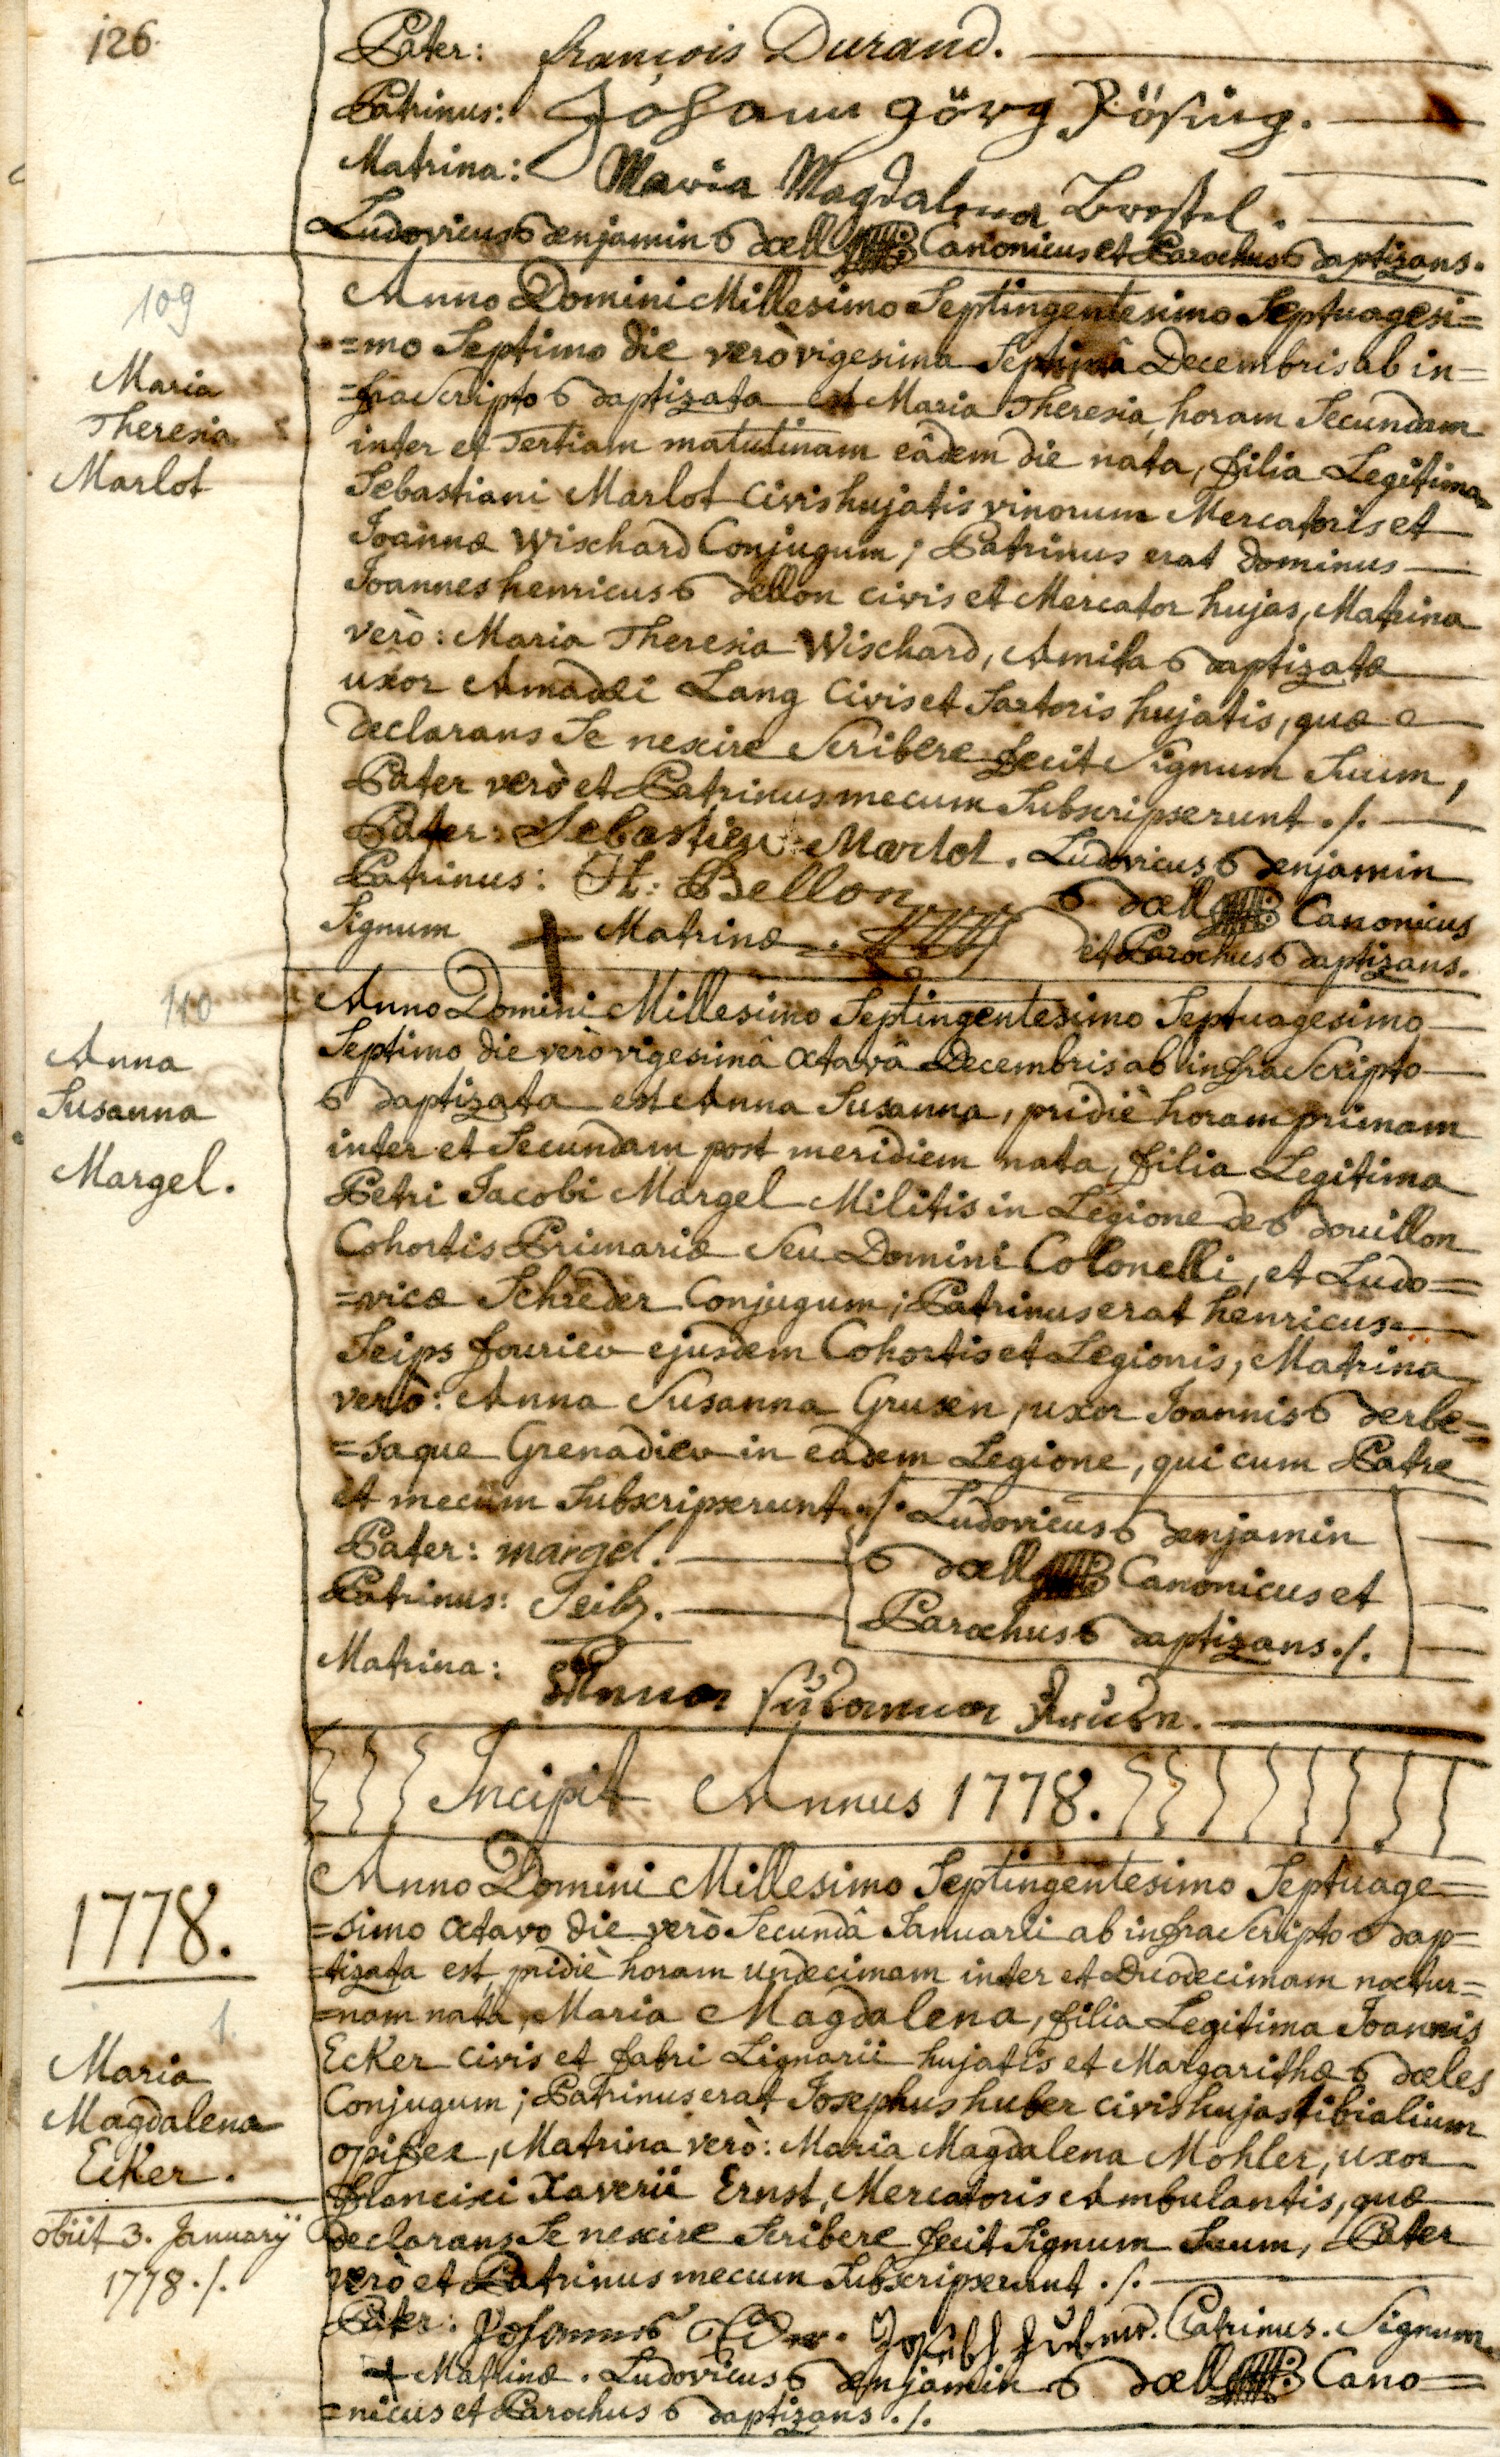 126.
Pater: françois Durand.
Patrinus: Johann Görg Rösing.
Matrina: Maria Magdalena
Ludovicus Benjamin Bœll Canonicus et Parochus Baptizans.
109
Maria
Theresia
Marlot
Anno Domini Millesimo Septingentesimo Septuagesi=
=mo Septimo die verò vigesima Septimâ Decembris ab in=
=frascripto Baptizata est Maria Theresia, horam Secundam
inter et Tertiam matutinam eâdem die nata, filia Legitima
Sebastiani Marlot Civis hujatis vinorum Mercatoris et
Joannæ Wischard Conjugum; Patrinus erat Dominus
Joannes henricus Bellon civis et Mercator hujas, Matrina
verò: Maria Theresia Wischard, Amita Baptizatæ
uxor Amadæi Lang Civis et Sartoris hujatis, quæ
declarans Se nescire Scribere fecit Signum Suum,
Pater verò et Patrinus mecum Subscripserunt ./.
Pater: Sebastien Marlot. Ludovicus Benjamin
Patrinus: H: Bellon Bœll Canonicus
Signum + Matrinæ. et Parochus Baptizans.
110
Anna
Susanna
Margel.
Anno Domini Millesimo Septingentesimo Septuagesimo
Septimo die verò vigesimâ octavâ Decembris ab infra Scripto
Baptizata est Anna Susanna, pridiè horam primam
inter et Secundam post meridiem nata, filia Legitima
Petri Jacobi Margel Militis in Legione de Bouillon
Cohortis Primariæ Seu Domini Colonelli, et Ludo=
=vicæ Schreder Conjugum; Patrinus erat henricus
Seips fourier ejusdem Cohortis et Legionis, Matrina
verò: Anna Susanna Grusen, uxor Joannis Berbe=
=saque Grenadier in eadem Legione, qui cum Patre
et mecum Subscripserunt ./. Ludovicus Benjamin
Pater: margel. Bœll Canonicus et
Patrinus: Seibz. Parochus Baptizans ./.
Matrina: Anna Susanna
Incipit Annus 1778.
1778.
1.
Maria
Magdalena
Ecker.
obiit 3. Januarÿ
1778 ./.
Anno Domini Millesimo Septingentesimo Septuage=
=simo octavo die verò Secundâ Januarii ab infra Scripto Bap=
=tizata est, pridiè horam undecimam inter et Duodecimam noctur=
=nam nata, Maria Magdalena, filia Legitima Joannis
Ecker civis et fabri Lignarii hujatis et Margarithæ Bœles
Conjugum; Patrinus erat Josephus huber civis hujas tibialium
opifex, Matrina verò: Maria Magdalena Mohler, uxor
francisci Xaverii Ernst, Mercatoris Ambulantis, quæ
declarans Se nescire Scribere fecit Signum Suum, Pater
verò et Patrinus mecum Subscripserunt ./.
Pater: Johannes Joseph Patrinus. Signum
+ Matrinæ. Ludovicus Benjamin Bœll Cano=
=nicus et Parochus Baptizans ./.